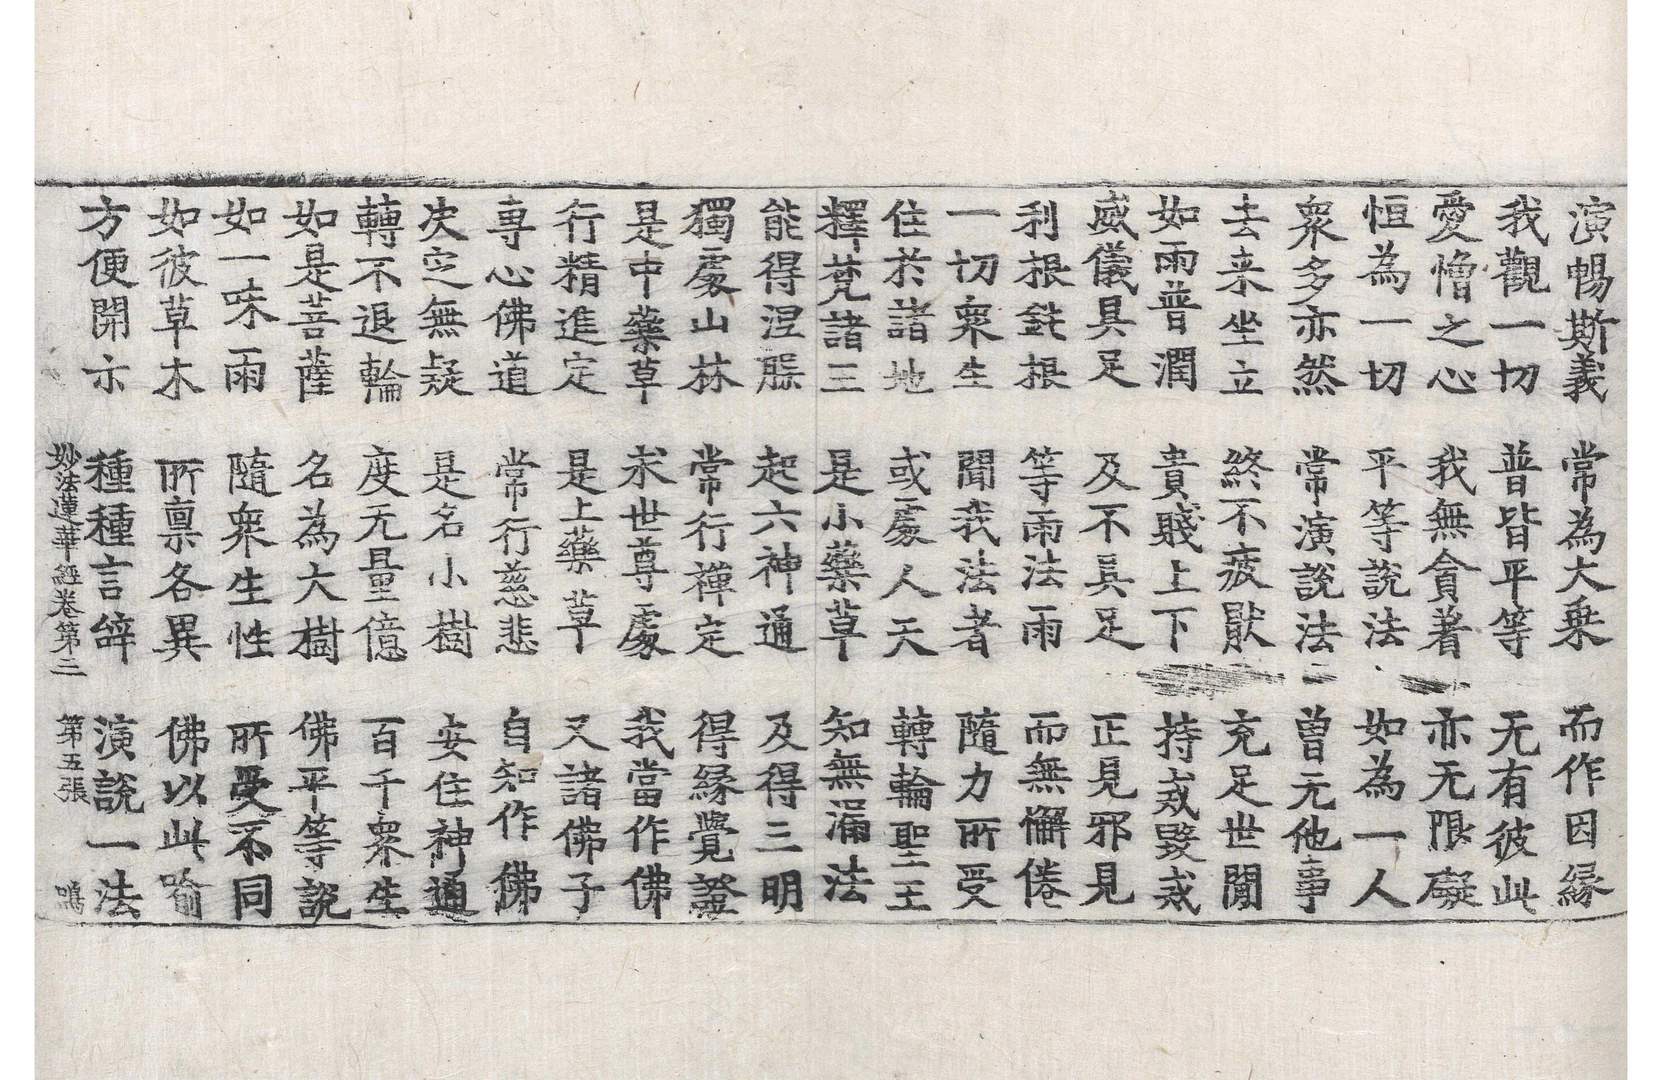 演暢斯義 常為大乗 而作因縁
我觀一切 普皆平等 无有彼此
愛憎之心 我無貪著 亦无限礙
恒為一切 平等說法 如為一人
衆多亦然 常演說法 曾无他事
去来坐立 終不疲猒 充足世閒
如雨普潤 貴賤上下 持戒毀戒
威儀具足 及不具足 正見邪見
利根鈍根 等雨法雨 而無懈倦
一切衆生 聞我法者 隨力所受
住於諸地 或處人天 轉輪聖王
釋梵諸王 是小藥草 知無漏法
能得涅槃 起六神通 及得三明
獨處山林 常行禪定 得縁覺證
是中藥草 求世尊處 我當作佛
行精進定 是上藥草 又諸佛子
専心佛道 常行慈悲 自知作佛
决定無疑 是名小樹 安住神通
轉不退輪 度无量億 百千衆生
如是菩薩 名為大樹 佛平等說
如一味雨 隨衆生性 所受不同
如彼草木 所禀各異 佛以此喻
方便開示 種種言辝 演說一法
妙法蓮華經卷第三 第五張 鳴